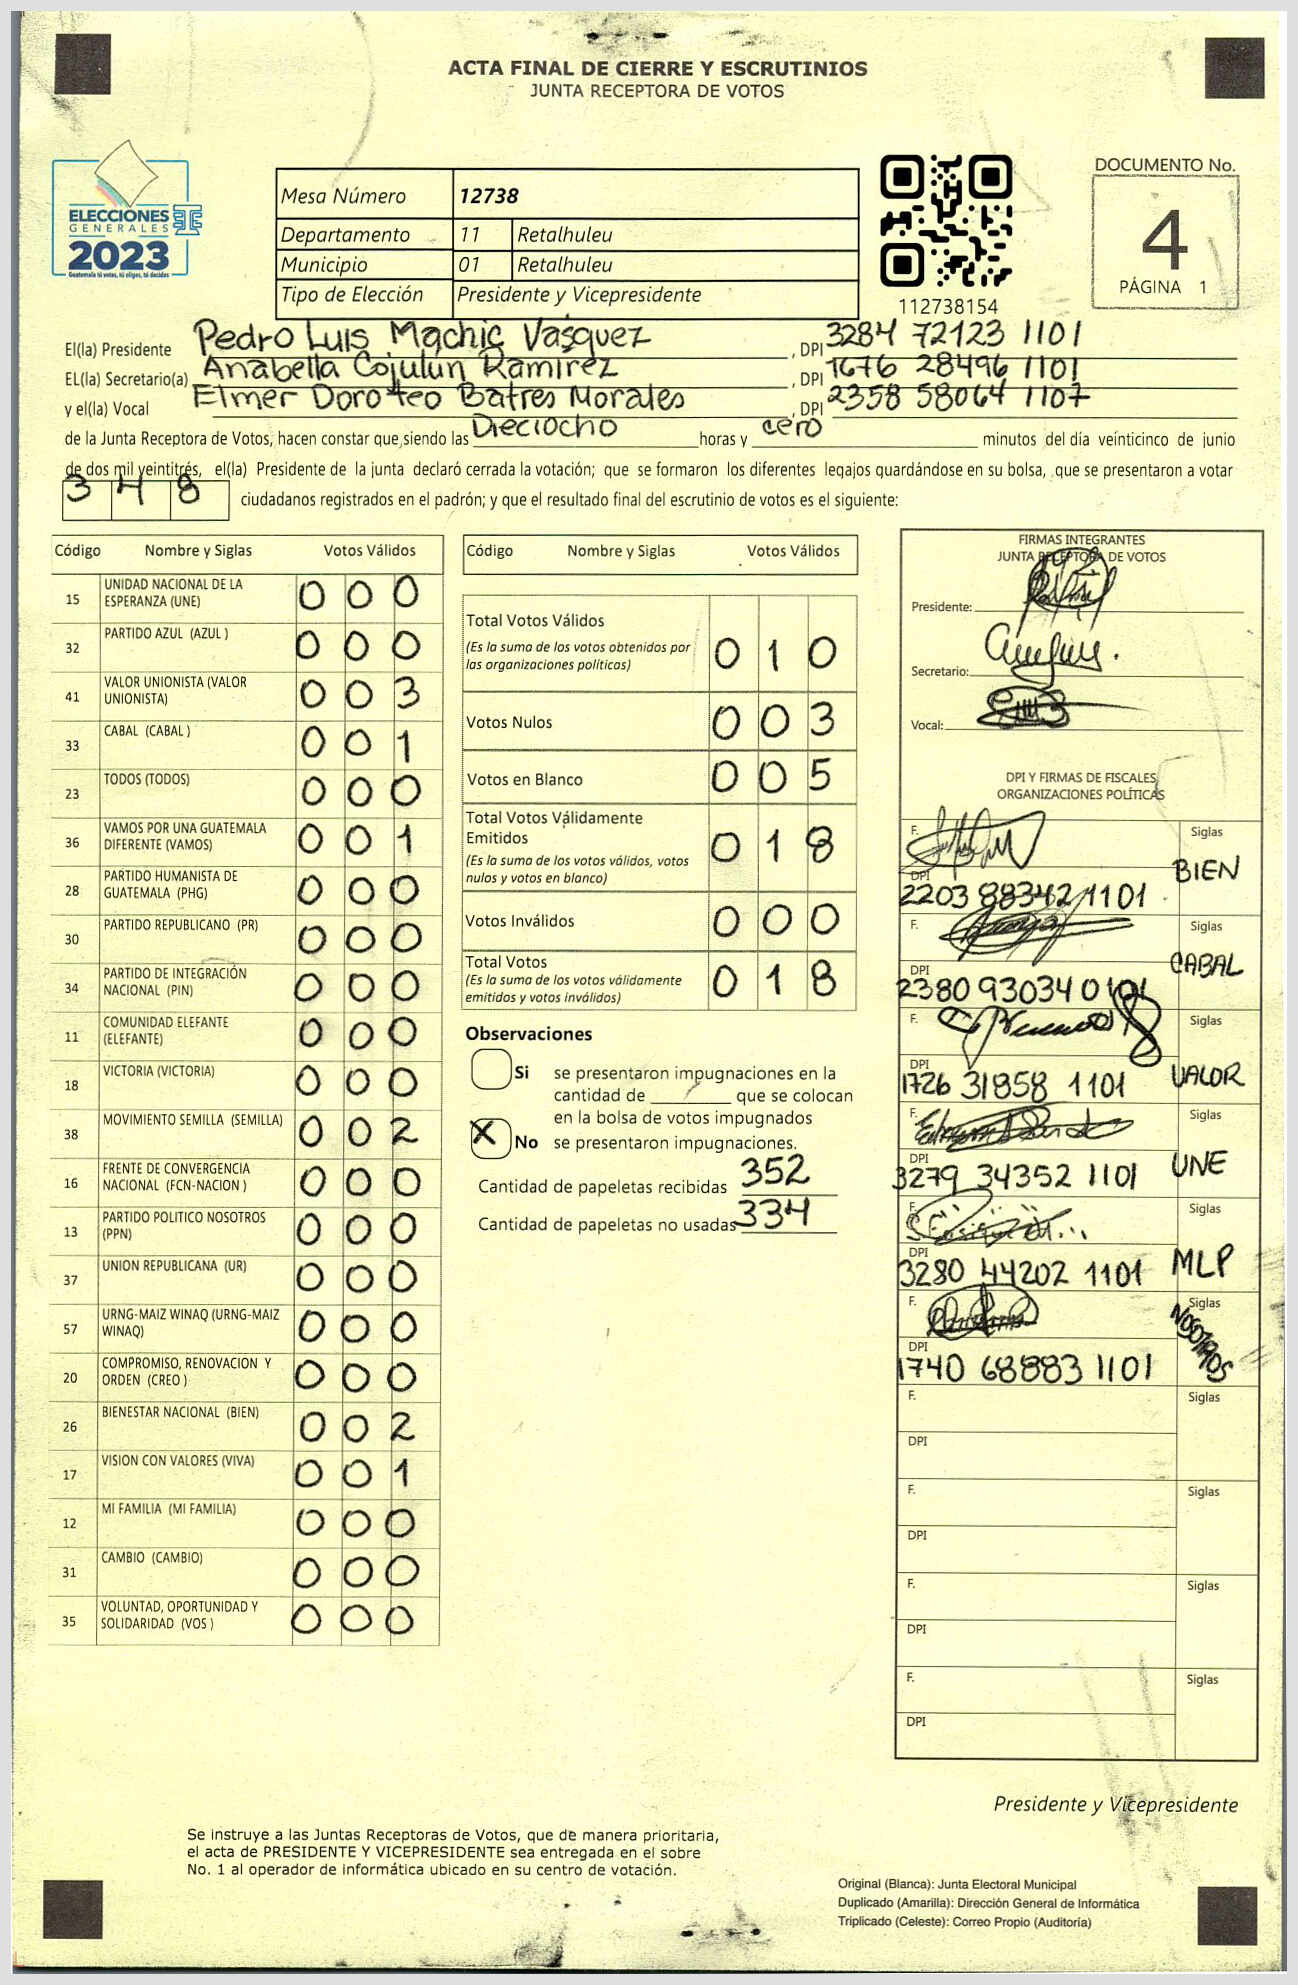 ACTA FINAL DE CIERRE Y ESCRUTINIOS
JUNTA RECEPTORA DE VOTOS
ELECCIONES
GENERALES
2023
Guatemala tú votas, tú eliges, tú decides
Mesa Número 12738
Departamento 11 Retalhuleu
Municipio 01 Retalhuleu
Tipo de Elección Presidente y Vicepresidente
112738154
DOCUMENTO No.
4
PÁGINA 1
El(la) Presidente Pedro Luis Machic Vasquez , DPI 3284 72123 1101
EL(la) Secretario(a) Anabella Cojulún Ramirez , DPI 1676 28496 1101
y el(la) Vocal Elmer Doroteo Batres Morales , DPI 2358 58064 1107
de la Junta Receptora de Votos, hacen constar que,siendo las Dieciocho horas y cero minutos del día veinticinco de junio
de dos mil veintitrés, el(la) Presidente de la junta declaró cerrada la votación; que se formaron los diferentes legajos guardándose en su bolsa, que se presentaron a votar
348 ciudadanos registrados en el padrón; y que el resultado final del escrutinio de votos es el siguiente:
Código Nombre y Siglas Votos Válidos
15 UNIDAD NACIONAL DE LA ESPERANZA (UNE) 0 0 0
32 PARTIDO AZUL (AZUL ) 0 0 0
41 VALOR UNIONISTA (VALOR UNIONISTA) 0 0 3
33 CABAL (CABAL ) 0 0 1
23 TODOS (TODOS) 0 0 0
36 VAMOS POR UNA GUATEMALA DIFERENTE (VAMOS) 0 0 1
28 PARTIDO HUMANISTA DE GUATEMALA (PHG) 0 0 0
30 PARTIDO REPUBLICANO (PR) 0 0 0
34 PARTIDO DE INTEGRACIÓN NACIONAL (PIN) 0 0 0
11 COMUNIDAD ELEFANTE (ELEFANTE) 0 0 0
18 VICTORIA (VICTORIA) 0 0 0
38 MOVIMIENTO SEMILLA (SEMILLA) 0 0 2
16 FRENTE DE CONVERGENCIA NACIONAL (FCN-NACION ) 0 0 0
13 PARTIDO POLITICO NOSOTROS (PPN) 0 0 0
37 UNION REPUBLICANA (UR) 0 0 0
57 URNG-MAIZ WINAQ (URNG-MAIZ WINAQ) 0 0 0
20 COMPROMISO, RENOVACION Y ORDEN (CREO ) 0 0 0
26 BIENESTAR NACIONAL (BIEN) 0 0 2
17 VISION CON VALORES (VIVA) 0 0 1
12 MI FAMILIA (MI FAMILIA) 0 0 0
31 CAMBIO (CAMBIO) 0 0 0
35 VOLUNTAD, OPORTUNIDAD Y SOLIDARIDAD (VOS ) 0 0 0
Código Nombre y Siglas Votos Válidos
Total Votos Válidos
(Es la suma de los votos obtenidos por las organizaciones políticas) 0 1 0
Votos Nulos 0 0 3
Votos en Blanco 0 0 5
Total Votos Válidamente Emitidos
(Es la suma de los votos válidos, votos nulos y votos en blanco) 0 1 8
Votos Inválidos 0 0 0
Total Votos
(Es la suma de los votos válidamente emitidos y votos inválidos) 0 1 8
Observaciones
Si se presentaron impugnaciones en la
cantidad de ________ que se colocan
en la bolsa de votos impugnados
X No se presentaron impugnaciones.
Cantidad de papeletas recibidas 352
Cantidad de papeletas no usadas 334
FIRMAS INTEGRANTES
JUNTA RECEPTORA DE VOTOS
Presidente:
Secretario:
Vocal:
DPI Y FIRMAS DE FISCALES
ORGANIZACIONES POLÍTICAS
F. Siglas
DPI 2203 88342 1101 BIEN
F. Siglas
DPI 2380 93034 0101 CABAL
F. Siglas
DPI 1726 31858 1101 VALOR
F. Siglas
DPI 3279 34352 1101 UNE
F. Siglas
DPI 3280 44202 1101 MLP
F. Siglas
DPI 1740 68883 1101 NOSOTROS
F. Siglas
DPI
F. Siglas
DPI
F. Siglas
DPI
F. Siglas
DPI
Presidente y Vicepresidente
Se instruye a las Juntas Receptoras de Votos, que de manera prioritaria,
el acta de PRESIDENTE Y VICEPRESIDENTE sea entregada en el sobre
No. 1 al operador de informática ubicado en su centro de votación.
Original (Blanca): Junta Electoral Municipal
Duplicado (Amarilla): Dirección General de Informática
Triplicado (Celeste): Correo Propio (Auditoría)